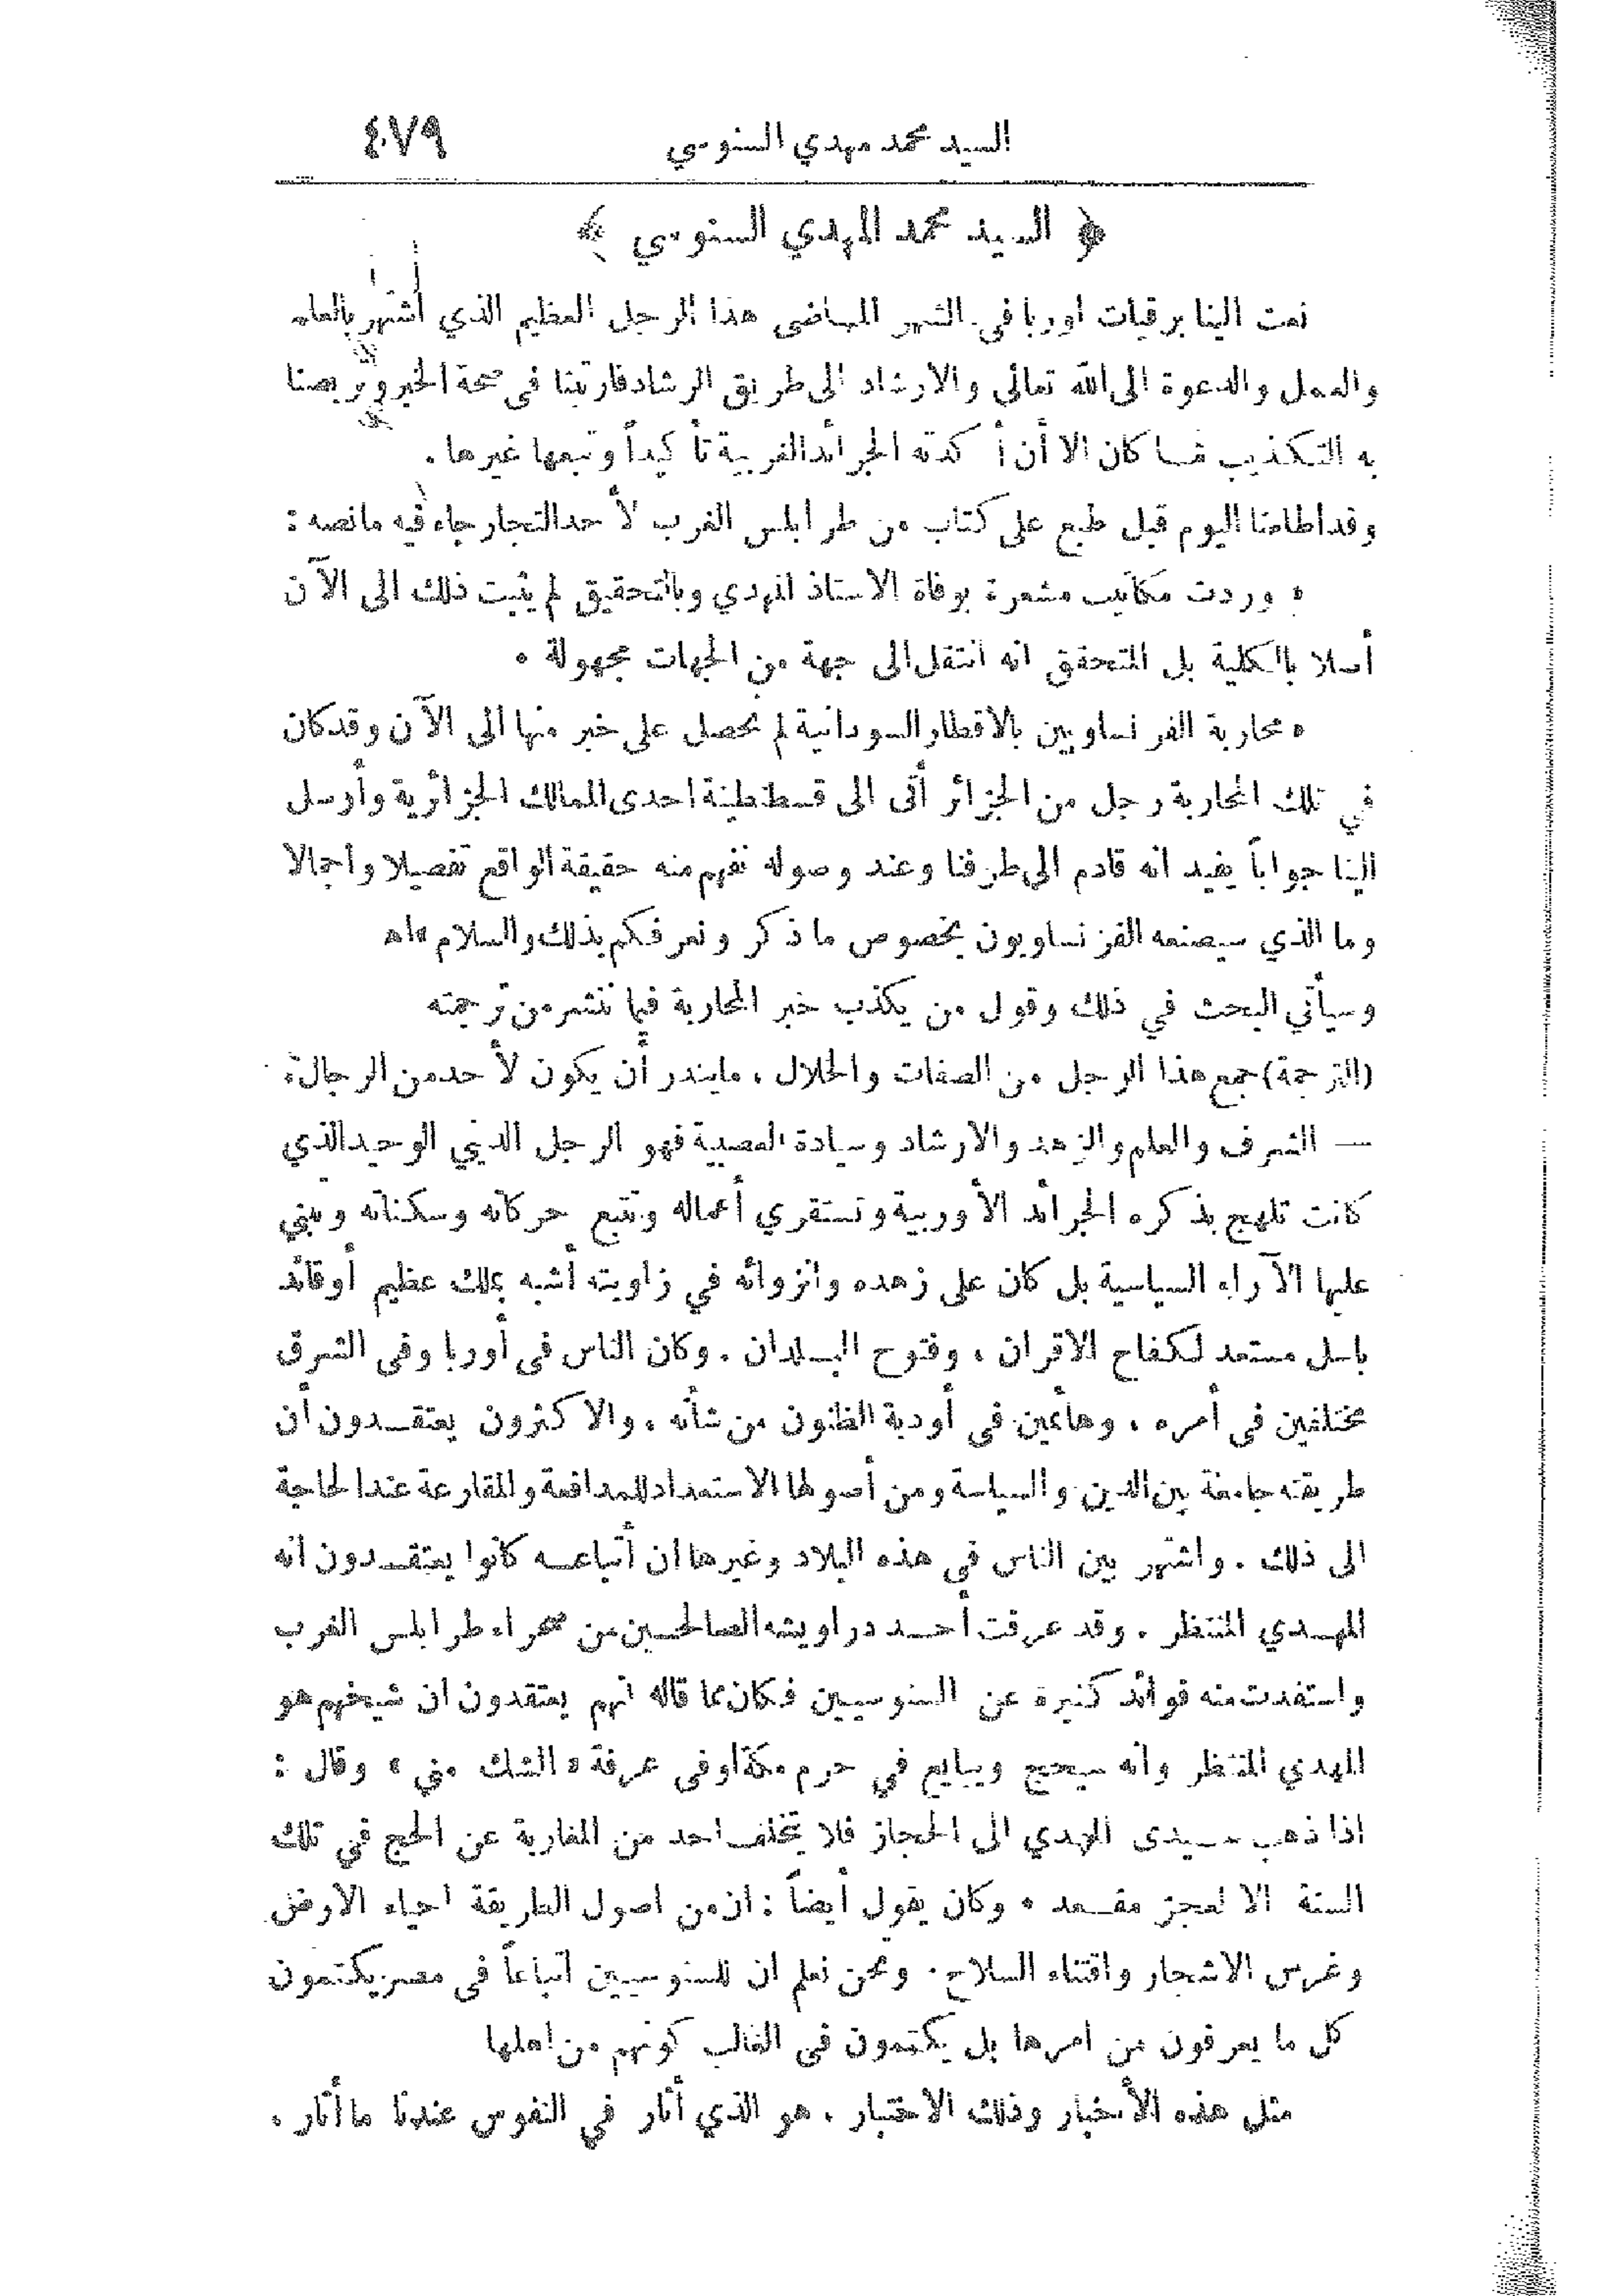 السيد محمد مهدي السنوسي ٤٧٩
﴿ السيد محمد المهدي السنوسي ﴾
نعت الينا برقيات اوربا في الشهر الماضى هذا الرجل العظيم الذي اشتهر بالعلم
والعمل والدعوة الى الله تعالى والارشاد الى طريق الرشاد فارتبنا فى صحة الخبر وتربصنا
به التكذيب فما كان الا أن أكدته الجرائد الغربية تأكيداً وتبعها غيرها .
وقد اطلعنا اليوم قبل طبع على كتاب من طرابلس الغرب لأحد التجار جاء فيه ما نصه :
« وردت مكاتيب مشعرة بوفاة الاستاذ المهدي وبالتحقيق لم يثبت ذلك الى الآن
أصلا بالكلية بل المتحقق انه انتقل الى جهة من الجهات مجهولة .
« محاربة الفرنساويين بالاقطار السودانية لم نحصل على خبر منها الى الآن وقد كان
في تلك المحاربة رجل من الجزائر أتى الى قسطنطينة احدى الممالك الجزائرية وأرسل
الينا جواباً يفيد انه قادم الى طرفنا وعند وصوله نفهم منه حقيقة الواقع تفصيلا واجمالا
وما الذي سيصنعه الفرنساويون بخصوص ما ذكر ونعرفكم بذلك والسلام » اه
وسيأتي البحث في ذلك وقول من يكذب خبر المحاربة فيما ننشر من ترجمته
(الترجمة) جمع هذا الرجل من الصفات والخلال ، ما يندر أن يكون لأحد من الرجال :
— الشرف والعلم والزهد والارشاد وسيادة العصبية فهو الرجل الديني الوحيد الذي
كانت تلهج بذكره الجرائد الأوربية وتستقري أعماله وتتبع حركاته وسكناته وتبني
عليها الآراء السياسية بل كان على زهده وانزوائه في زاويته أشبه بملك عظيم أو قائد
باسل مستعد لكفاح الاقران ، وفتوح البلدان . وكان الناس فى أوربا وفى الشرق
مختلفين في أمره ، وهائمين في أودية الظنون من شأنه ، والاكثرون يعتقدون أن
طريقته جامعة بين الدين والسياسة ومن أصولها الاستعداد للمدافعة والمقارعة عند الحاجة
الى ذلك . واشتهر بين الناس في هذه البلاد وغيرها ان أتباعه كانوا يعتقدون انه
المهدي المنتظر . وقد عرفت أحد دراويشه الصالحين من صحراء طرابلس الغرب
واستفدت منه فوائد كثيرة عن السنوسيين فكان مما قاله انهم يعتقدون ان شيخهم هو
المهدي المنتظر وانه سيحج ويبايع في حرم مكة أو فى عرفة « الشك مني » وقال :
اذا ذهب سيدى المهدي الى الحجاز فلا يتخلف احد من المغاربة عن الحج في تلك
السنة الا لعجز مقعد . وكان يقول أيضاً : ان من اصول الطريقة احياء الارض
وغرس الاشجار واقتناء السلاح . ونحن نعلم ان للسنوسيين اتباعاً في مصر يكتمون
كل ما يعرفون من امرها بل يكتمون فى الغالب كونهم من اهلها
مثل هذه الأخبار وذلك الاختبار ، هو الذي أثار في النفوس عندنا ما أثار ،